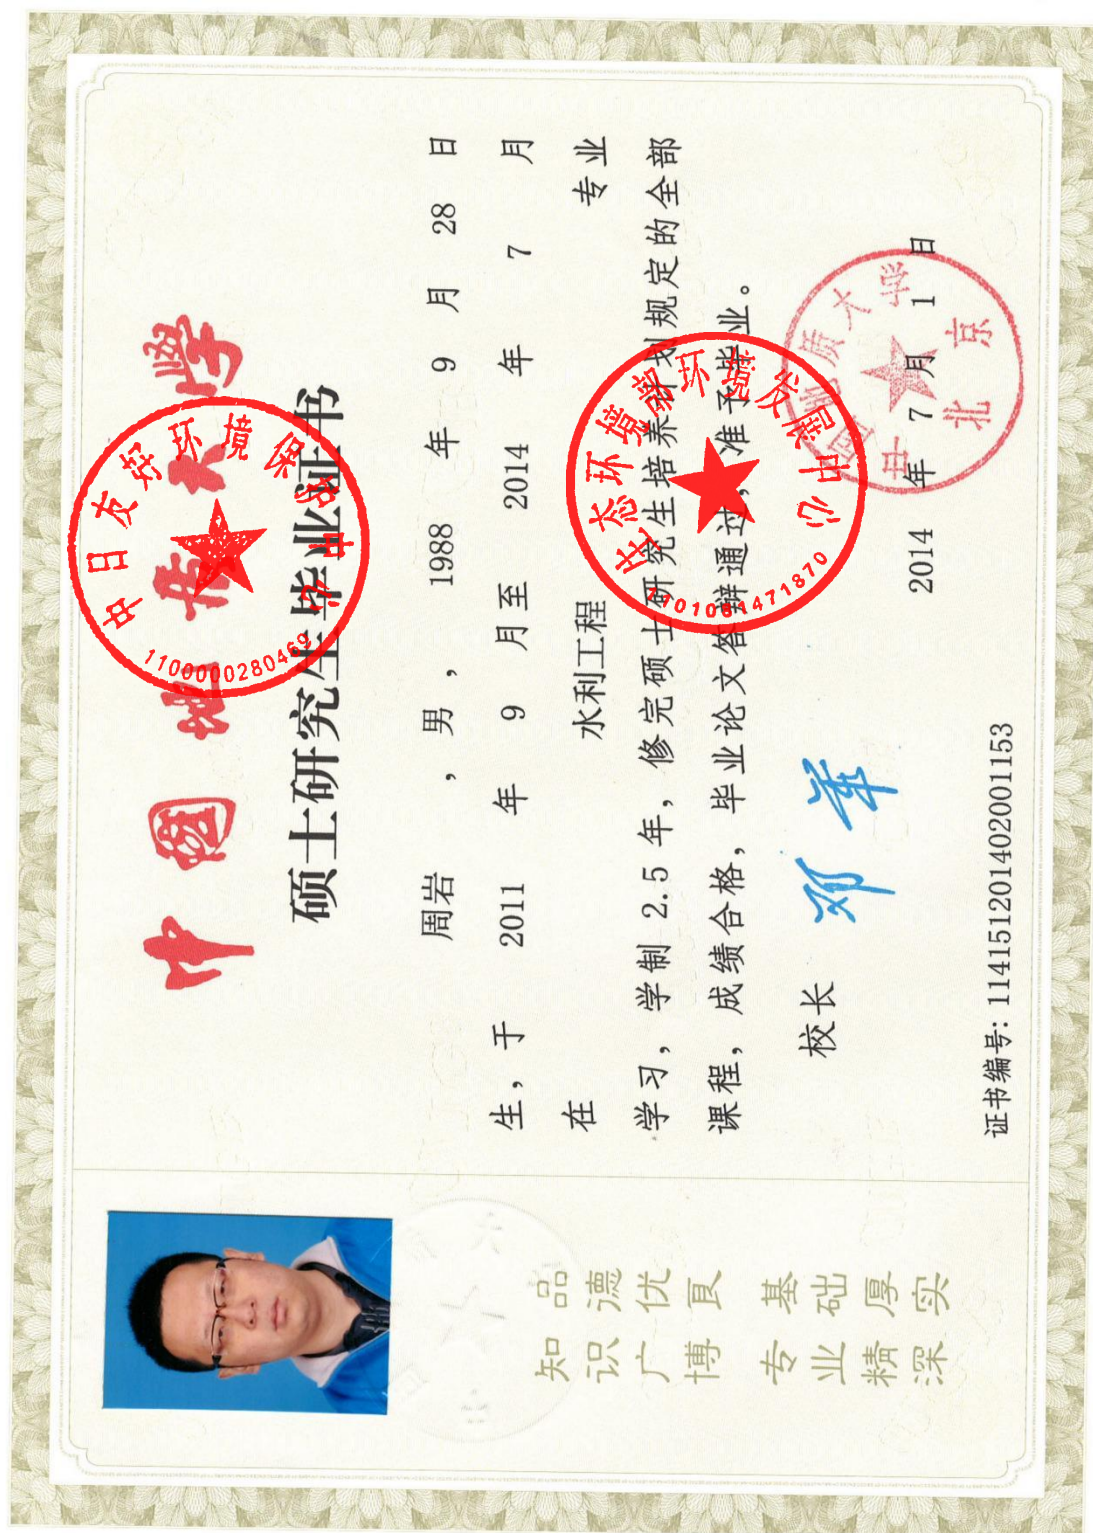 中國地质大學
硕士研究生毕业证书
周岩 ，男， 1988 年 9 月 28 日
生，于 2011 年 9 月至 2014 年 7 月
在 水利工程 专业
学习，学制 2.5 年，修完硕士研究生培养计划规定的全部
课程，成绩合格，毕业论文答辩通过，准予毕业。
校长 邓军
2014 年 7 月 1 日
证书编号: 114151201402001153
中日友好环境保护中心
1100000280469
生态环境部环境发展中心
1101081471870
中国地质大学
北京
品德优良 基础厚实
知识广博 专业精深